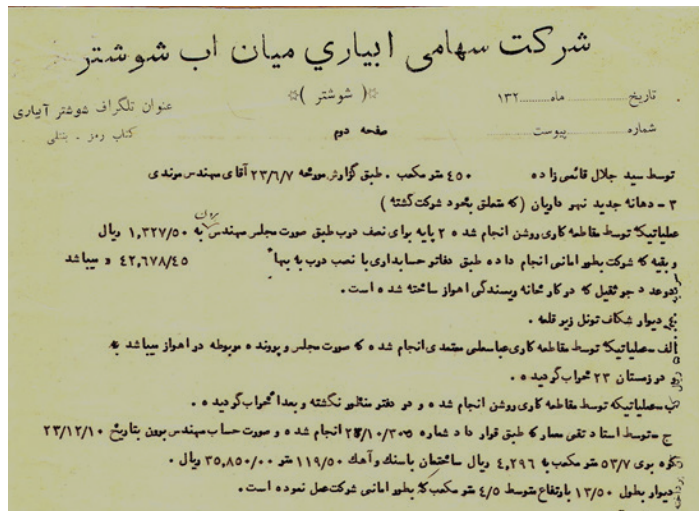 شرکت سهامی ابیاري میان اب شوشتر
( شوشتر )
تاریخ ماه ۱۳۲
عنوان تلگراف شوشتر آبیاری
شماره پیوست
صفحه دوم
کتاب رمز - بنتلی
توسط سید جلال قائمی زاده ۴۵۰ متر مکعب . طبق گزارش مورخه ۲۳/۶/۷ آقای مهندس موندی
۳ - دهانه جدید نهر داریان (که متعلق بخود شرکت گشته )
عملیاتیکه توسط مقاطعه کاری روشن انجام شده ۲ پایه برای نصب درب طبق صورت مجلس مهندس برون به ۱,۳۲۷/۵۰ ریال
و بقیه که شرکت بطور امانی انجام داده طبق دفاتر حسابداری با نصب درب به بهاء ۴۲,۶۷۸/۴۵ و میباشد
دوعدد جرثقیل که در کارخانه ریسندگی اهواز ساخته شده است .
دیوار شکاف تونل زیر قلعه .
الف - عملیاتیکه توسط مقاطعه کاری عباسعلی معتمدی انجام شده که صورت مجلس و پرونده مربوطه در اهواز میباشد
در زمستان ۲۳ خراب گردیده .
ب - عملیاتیکه توسط مقاطعه کاری روشن انجام شده و در دفتر منظور نگشته و بعدا خراب گردیده .
ج - توسط استاد تقی معمار که طبق قرار داد شماره انجام شده و صورت حساب مهندس برون بتاریخ ۲۳/۱۲/۱۰
۵۳/۷ متر مکعب به ۴,۲۹۶ ریال ساختمان باسنگ و آهک ۱۱۹/۵۰ متر ۳۵,۸۵۰/۰۰ ریال .
دیوار بطول ۱۳/۵۰ بارتفاع متوسط ۴/۵ متر مکعب که بطور امانی شرکت عمل نموده است .